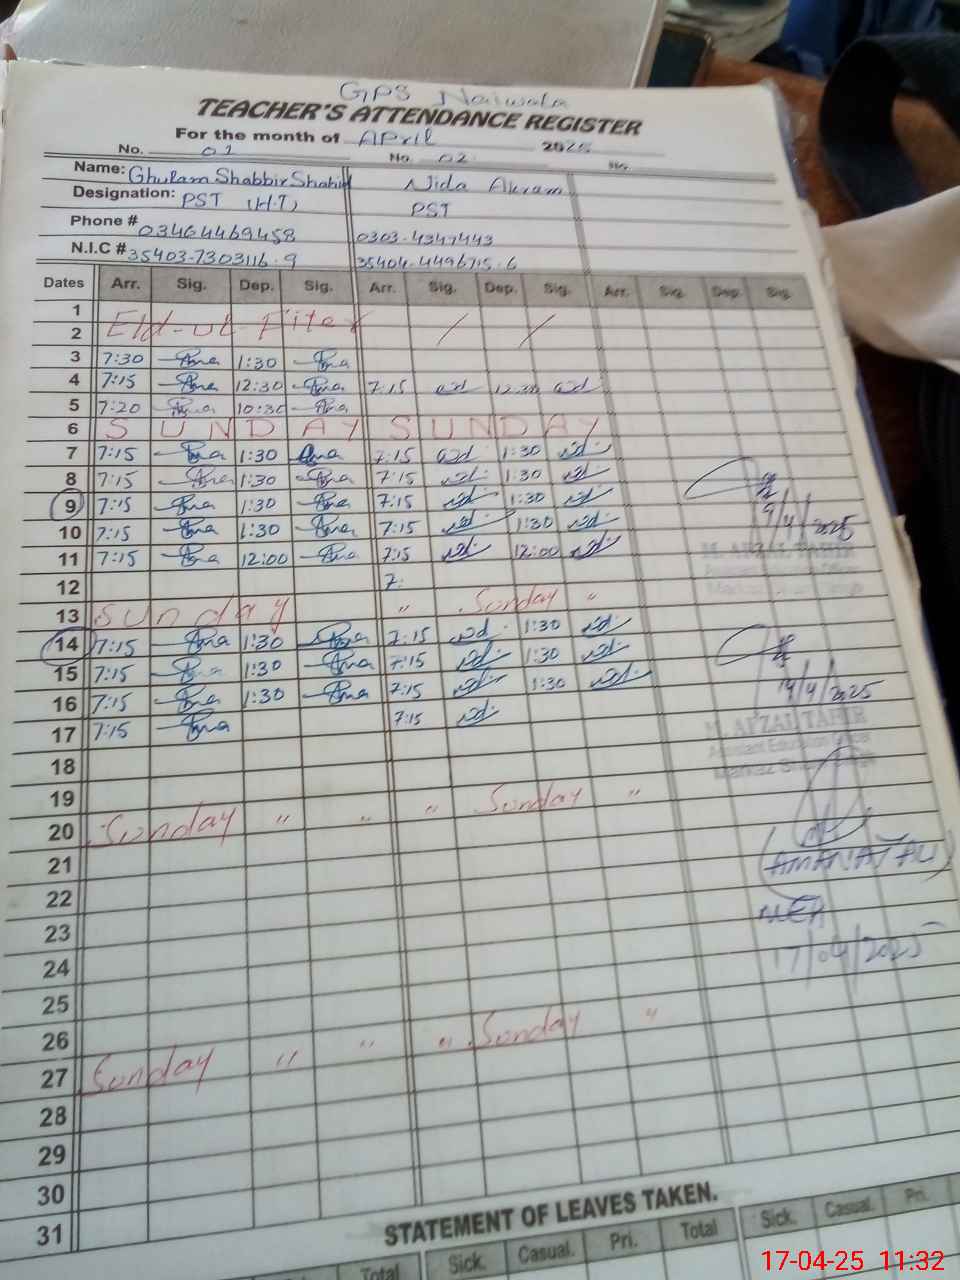 GPS Naiwala
TEACHER'S ATTENDANCE REGISTER
For the month of April 2025
No. 01 No. 02 No.
Name: Ghulam Shabbir Shahid Nida Akram
Designation: PST (H.T) PST
Phone # 03464469458 0303-4347443
N.I.C # 35403-7303116-9 35404-4496715-6
Dates Arr. Sig. Dep. Sig. Arr. Sig. Dep. Sig. Arr. Sig. Dep. Sig.
1
2 Eid-ul-Fiter / /
3 7:30 1:30
4 7:15 12:30 7:15 12:30
5 7:20 10:30
6 SUNDAY SUNDAY
7 7:15 1:30 7:15 1:30
8 7:15 1:30 7:15 1:30
9 7:15 1:30 7:15 1:30
9/4/2025
10 7:15 1:30 7:15 1:30
11 7:15 12:00 7:15 12:00
M. AFZAL TAHIR
12 7:
13 Sunday " Sunday "
14 7:15 1:30 7:15 1:30
15 7:15 1:30 7:15 1:30
14/4/2025
16 7:15 1:30 7:15 1:30
17 7:15 7:15
M. AFZAL TAHIR
Assistant Education Officer
Markaz
18
19
20 Sunday " " " Sunday "
21
(AMANAT ALI)
22
MEA
23
17/04/2025
24
25
26
27 Sunday " " " Sunday "
28
29
30
31
STATEMENT OF LEAVES TAKEN.
Total Sick. Casual. Pri. Total Sick. Casual. Pri.
17-04-25 11:32